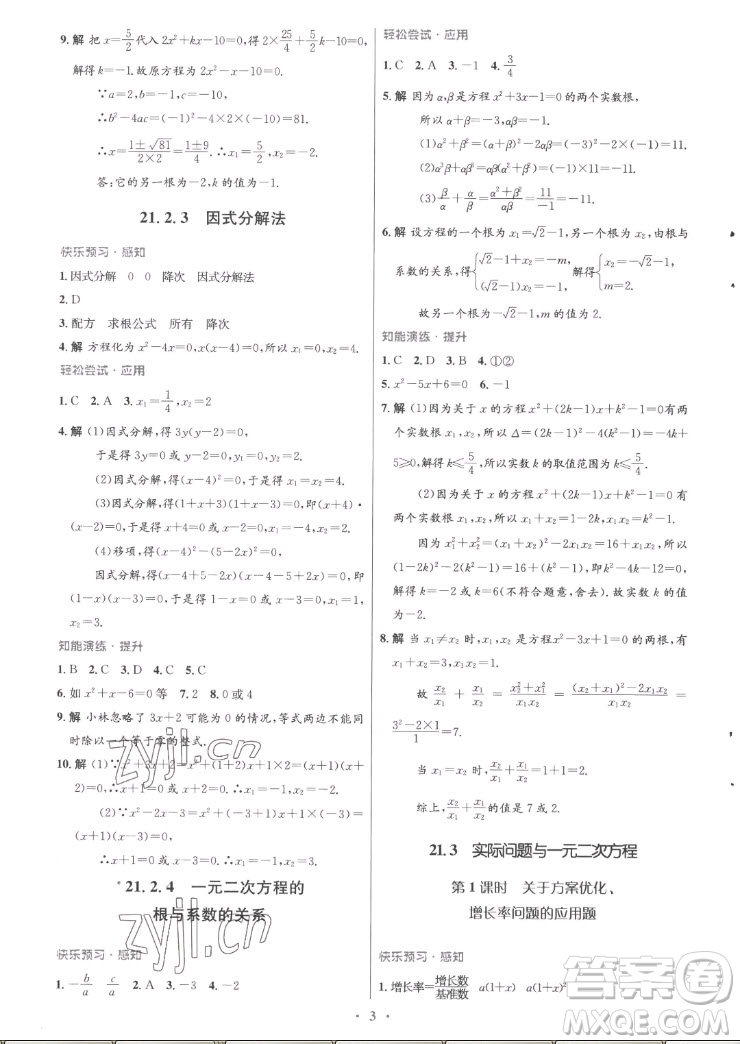 9.解 把x=5/2代入2x²+kx-10=0,得2×25/4+5/2k-10=0,
解得k=-1.故原方程为2x²-x-10=0.
∵a=2,b=-1,c=-10,
∴b²-4ac=(-1)²-4×2×(-10)=81.
∴x=(1±√81)/(2×2)=(1±9)/4,∴x₁=5/2,x₂=-2.
答:它的另一根为-2,k的值为-1.
21.2.3 因式分解法
快乐预习·感知
1.因式分解 0 0 降次 因式分解法
2.D
3.配方 求根公式 所有 降次
4.解 方程化为x²-4x=0,x(x-4)=0,∴x₁=0,x₂=4.
轻松尝试·应用
1.C 2.A 3.x₁=1/4,x₂=2
4.解 (1)因式分解,得3y(y-2)=0,
于是得3y=0或y-2=0,y₁=0,y₂=2.
(2)因式分解,得(x-4)²=0,于是得x₁=x₂=4.
(3)因式分解,得(1+x+3)(1+x-3)=0,即(x+4)·
(x-2)=0,于是得x+4=0或x-2=0,x₁=-4,x₂=2.
(4)移项,得(x-4)²-(5-2x)²=0,
因式分解,得(x-4+5-2x)(x-4-5+2x)=0,即
(1-x)(3x-9)=0,于是得1-x=0或3x-9=0,x₁=1,
x₂=3.
知能演练·提升
1.B 2.C 3.D 4.C 5.C
6.如x²+x-6=0等 7.2 8.0或4
9.解 小林忽略了3x+2可能为0的情况,等式两边不能同
时除以一个等于零的整式.
10.解 (1)∵x²+3x+2=x²+(1+2)x+1×2=(x+1)(x
+2)=0,∴x+1=0或x+2=0,∴x₁=-1,x₂=-2.
(2)∵x²-2x-3=x²+(-3+1)x+1×(-3)=
(x+1)(x-3)=0,
∴x+1=0或x-3=0,∴x₁=-1,x₂=3.
*21.2.4 一元二次方程的
根与系数的关系
快乐预习·感知
1.-b/a c/a 2.A 3.-3 4.-2
轻松尝试·应用
1.C 2.A 3.-1 4.3/4
5.解 因为α,β是方程x²+3x-1=0的两个实数根,
所以α+β=-3,αβ=-1.
(1)α²+β²=(α+β)²-2αβ=11.
(2)α³β+αβ³=αβ(α²+β²)=-11.
(3)β/α+α/β=(α²+β²)/αβ=11/-1=-11.
6.解 设方程的一个根为x₁=√2-1,另一个根为x₂,由根与
系数的关系,得{√2-1+x₂=-m,(√2-1)x₂=-1,解得{x₂=-√2-1,m=2.
故另一个根为-√2-1,m的值为2.
知能演练·提升
1.C 2.D 3.B 4.①②
5.x²-5x+6=0 6.-1
7.解 (1)因为关于x的方程x²+(2k-1)x+k²-1=0有两
个实数根x₁,x₂,所以Δ=(2k-1)²-4(k²-1)=-4k+
5≥0,解得k≤5/4,所以实数k的取值范围为k≤5/4.
(2)因为关于x的方程x²+(2k-1)x+k²-1=0有
两个实数根x₁,x₂,所以x₁+x₂=1-2k,x₁x₂=k²-1.
因为x₁²+x₂²=(x₁+x₂)²-2x₁x₂=16+x₁x₂,所以
(1-2k)²-2×(k²-1)=16+(k²-1),即k²-4k-12=0,
解得k=-2或k=6(不符合题意,舍去).所以实数k的
值为-2.
8.解 当x₁≠x₂时,x₁,x₂是方程x²-3x+1=0的两根,有
x₁+x₂=3,x₁x₂=1.
故x₂/x₁+x₁/x₂=(x₂²+x₁²)/x₁x₂=((x₁+x₂)²-2x₁x₂)/x₁x₂=
(3²-2×1)/1=7.
当x₁=x₂时,x₂/x₁+x₁/x₂=1+1=2.
综上,x₂/x₁+x₁/x₂的值是7或2.
21.3 实际问题与一元二次方程
第1课时 关于方案优化、
增长率问题的应用题
快乐预习·感知
1.增长率=增长数/基准数 a(1+x) a(1+x)²
·3·
zyjl.cn
答案圈